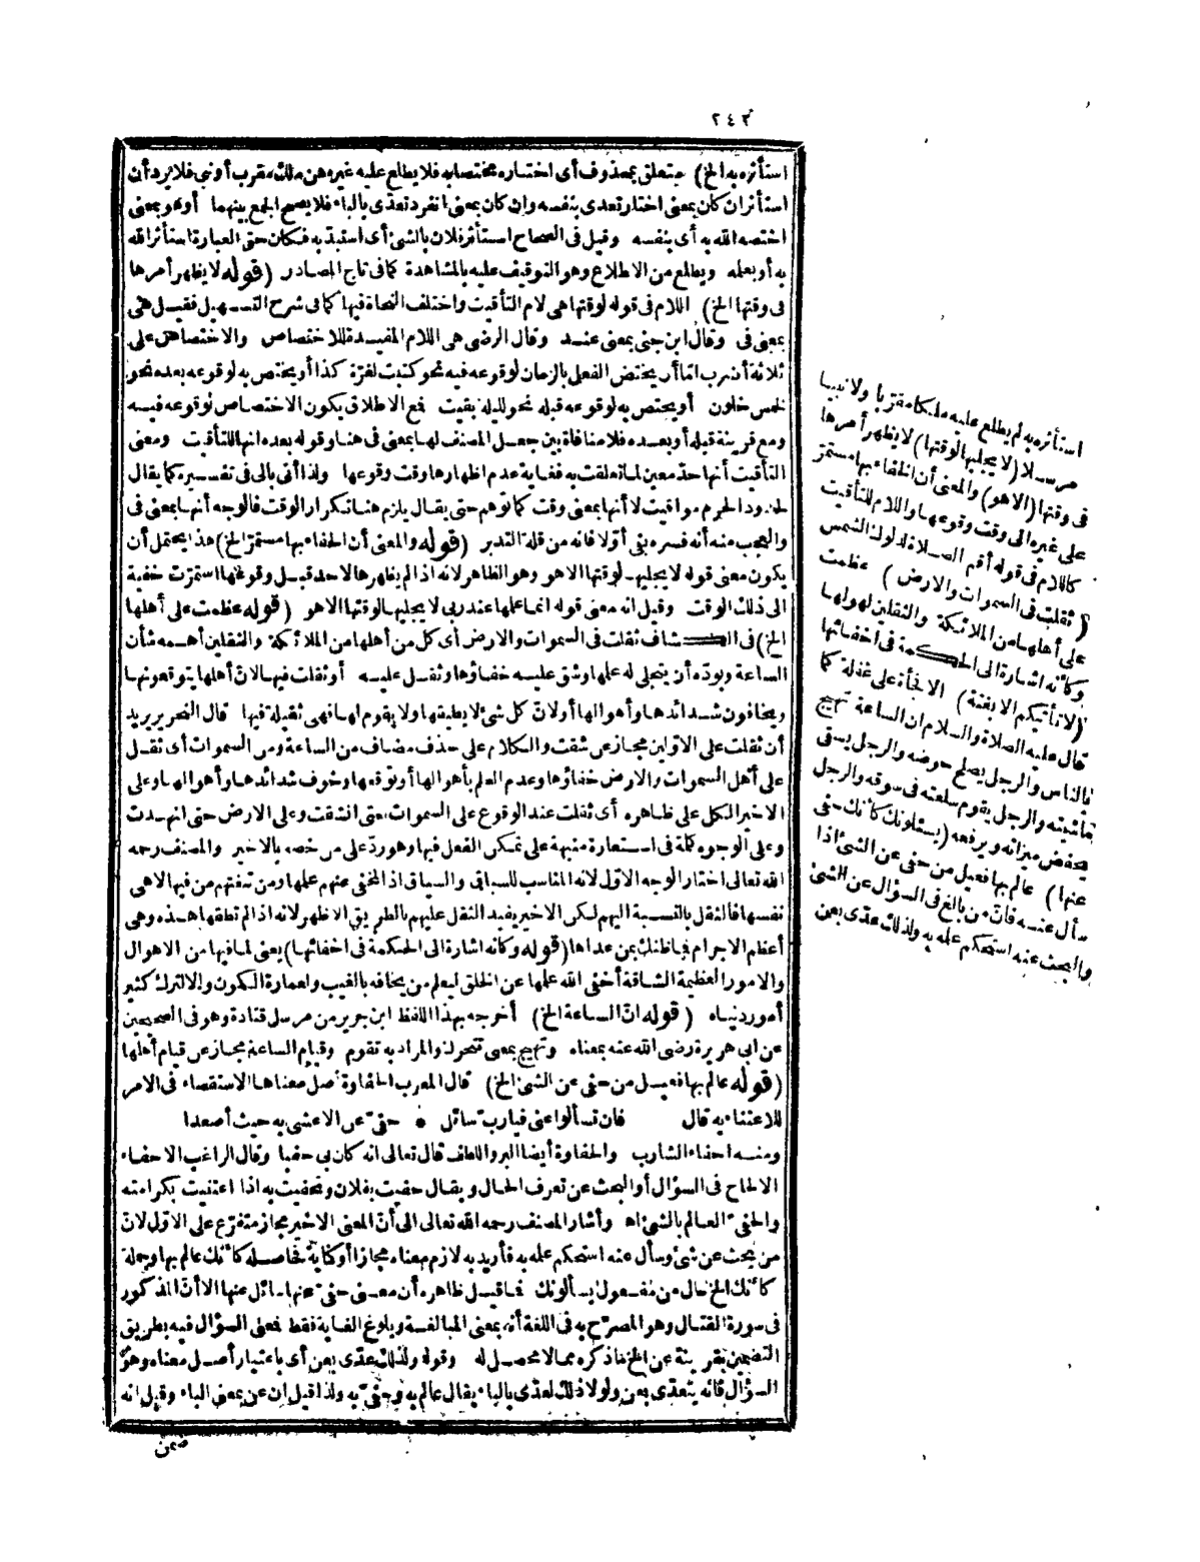 ٢٤٣
استأثره به الخ) متعلق بمحذوف أى اختاره مختصا به فلا يطلع عليه غيره من ملك مقرب أو نبى فلا يرد أن
استأثر ان كان بمعنى اختار تعدى بنفسه وان كان بمعنى انفرد تعدى بالباء فلا يصح الجمع بينهما أو هو بمعنى
اختصه الله به أى بنفسه وقيل فى الصحاح استأثر فلان بالشئ أى استبد به فكان حق العبارة استأثر الله
به أو بعلمه ويطلع من الاطلاع وهو التوقيف عليه بالمشاهدة كما فى تاج المصادر (قوله لا يظهر أمرها
فى وقتها الخ) اللام فى قوله لوقتها هى لام التأقيت واختلف النحاة فيها كما فى شرح التسهيل فقيل هى
بمعنى فى وقال ابن جنى بمعنى عند وقال الرضى هى اللام المفيدة للاختصاص والاختصاص على
ثلاثة أضرب اما أن يختص الفعل بالزمان لوقوعه فيه نحو كتبت لغرة كذا أو يختص به لوقوعه بعده نحو
لخمس خلون أو يختص به لوقوعه قبله نحو لليلة بقيت فمع الاطلاق يكون الاختصاص لوقوعه فيه
ومع قرينة قبله أو بعده فلا منافاة بين جعل المصنف لها بمعنى فى هنا وقوله بعده انها للتأقيت ومعنى
التأقيت أنها حد معين لما تعلقت به فغاية عدم اظهارها وقت وقوعها ولذا أتى بالى فى تفسيره كما يقال
لحدود الحرم مواقيت لا أنها بمعنى وقت كما توهم حتى يقال يلزم هنا تكرار الوقت فالوجه أنها بمعنى فى
والعجب منه أنه فسره بفى أولا فانه من قلة التدبر (قوله والمعنى أن الخفاء بها مستمر الخ) هذا يحتمل أن
يكون معنى قوله لا يجليها لوقتها الا هو وهو الظاهر لانه اذا لم يظهرها الا حد قبل وقوعها استمرت خفية
الى ذلك الوقت وقيل انه معنى قوله انما علمها عند ربى لا يجليها لوقتها الا هو (قوله عظمت على أهلها
الخ) فى الكشاف ثقلت فى السموات والارض أى كل من أهلها من الملائكة والثقلين أهمه شأن
الساعة وبوده أن يتجلى له علمها وشق عليه خفاؤها وثقل عليه أو ثقلت فيها لان أهلها يتوقعونها
ويخافون شدائدها وأهوالها أو لان كل شئ لا يطيقها ولا يقوم لها فهى ثقيلة فيها قال النحرير يريد
أن ثقلت على الاولين مجاز عن شقت والكلام على حذف مضاف من الساعة ومن السموات أى ثقل
على أهل السموات والارض خفاؤها وعدم العلم بأهوالها أو توقعها وخوف شدائدها وأهوالها وعلى
الاخير الكل على ظاهره أى ثقلت عند الوقوع على السموات حتى انشقت وعلى الارض حتى انهدت
وعلى الوجوه كلمة فى استعارة منبهة على تمكن الفعل فيها وهو رد على من خصه بالاخير والمصنف رحمه
الله تعالى اختار الوجه الاول لانه المناسب للسباق والسياق اذ المخفى عنهم علمها ومن تبغتهم من فيها لا هى
نفسها فالثقل بالنسبة اليهم لكن الاخير يفيد الثقل عليهم بالطريق الاظهر لانه اذا لم تطقها هذه وهى
أعظم الاجرام فما ظنك بمن عداها (قوله وكأنه اشارة الى الحكمة فى اخفائها) يعنى لما فيها من الاهوال
والامور العظيمة الشاقة أخفى الله علمها عن الخلق ليعلم من يخافه بالغيب ولعمارة الكون والا لترك كثير
أمور دنياه (قوله ان الساعة الخ) أخرجه بهذا اللفظ ابن جرير من مرسل قتادة وهو فى الصحيحين
عن أبى هريرة رضى الله عنه بمعناه وتهيج بمعنى تتحرك والمراد به تقوم وقيام الساعة مجاز عن قيام أهلها
(قوله عالم بها فعيل من حفى عن الشئ الخ) قال المعرب الحفاوة أصل معناها الاستقصاء فى الامر
للاعتناء به قال فان تسألوا عنى فيا رب سائل * حفى عن الاعشى به حيث أصعدا
ومنه احفاء الشارب والحفاوة أيضا البر واللطف قال تعالى انه كان بى حفيا وقال الراغب الاحفاء
الالحاح فى السؤال أو البحث عن تعرف الحال ويقال حفيت بفلان وتحفيت به اذا اعتنيت بكرامته
والحفى العالم بالشئ اه وأشار المصنف رحمه الله تعالى الى أن المعنى الاخير مجاز متفرع على الاول لان
من بحث عن شئ وسأل عنه استحكم علمه به فأريد به لازم معناه مجازا أو كناية فحاصله كأنك عالم بها وجملة
كأنك الخ حال من مفعول يسألونك فما قيل ظاهره أن معنى حفى عنها سائل عنها الا أن المذكور
فى سورة القتال وهو المصرح به فى اللغة أنه بمعنى المبالغة وبلوغ الغاية فقط فمعنى السؤال فيه بطريق
التضمين بقرينة عن الخ ما ذكره مما لا محصل له وقوله ولذلك عدى بعن أى باعتبار أصل معناه وهو
السؤال فانه يتعدى بعن ولولا ذلك لعدى بالباء يقال عالم به وحفى به ولذا قيل ان عن بمعنى الباء وقيل انه
ضمن
استأثره به لم يطلع عليه ملكا مقربا ولا نبيا
مرسلا (لا يجليها لوقتها) لا يظهر أمرها
فى وقتها (الا هو) والمعنى أن الخفاء بها مستمر
على غيره الى وقت وقوعها واللام للتأقيت
كاللام فى قوله أقم الصلاة لدلوك الشمس
(ثقلت فى السموات والارض) عظمت
على أهلها من الملائكة والثقلين لهولها
وكأنه اشارة الى الحكمة فى اخفائها
(لا تأتيكم الا بغتة) الا فجأة على غفلة كما
قال عليه الصلاة والسلام ان الساعة تهيج
بالناس والرجل يصلح حوضه والرجل يسقى
ماشيته والرجل يقوم سلعته فى سوقه والرجل
يخفض ميزانه ويرفعه (يسئلونك كأنك حفى
عنها) عالم بها فعيل من حفى عن الشئ اذا
سأل عنه فان من بالغ فى السؤال عن الشئ
والبحث عنه استحكم علمه به ولذلك عدى بعن